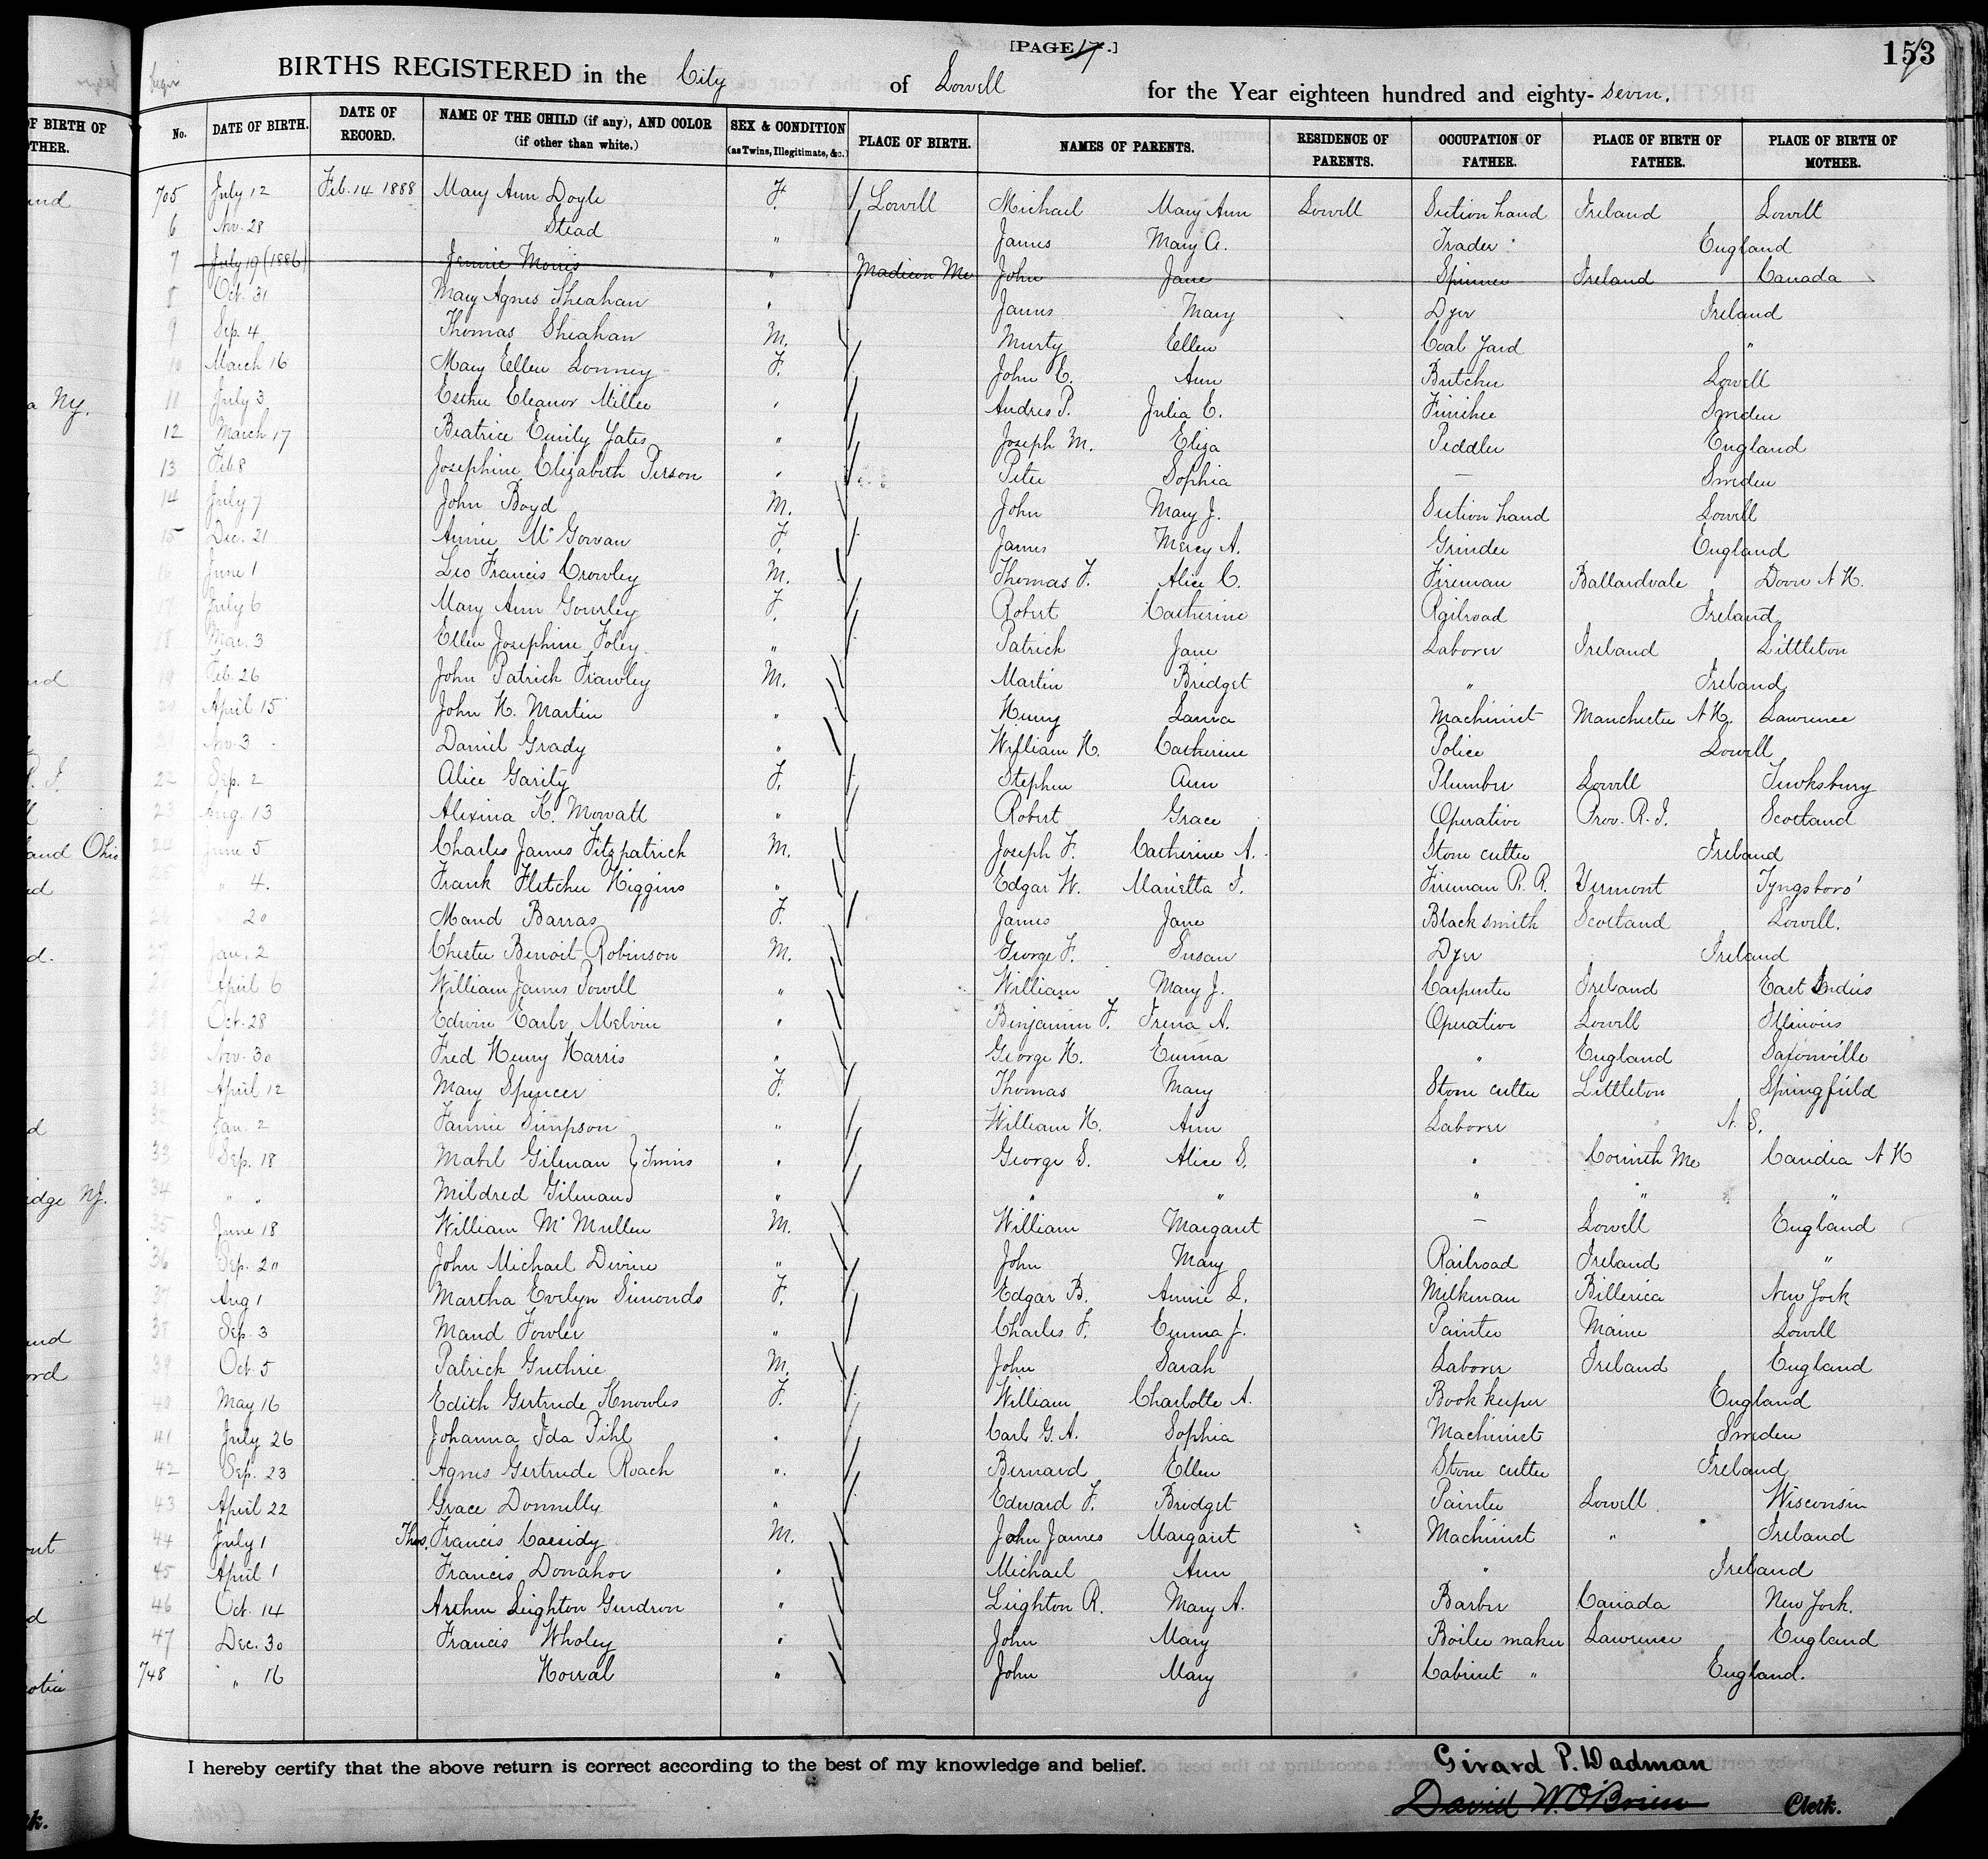 [PAGE 17.]
153
BIRTHS REGISTERED in the City of Lowell for the Year eighteen hundred and eighty-seven.
No. DATE OF BIRTH. DATE OF RECORD. NAME OF THE CHILD (if any), AND COLOR (if other than white.) SEX & CONDITION (as Twins, Illegitimate, &c.) PLACE OF BIRTH. NAMES OF PARENTS. RESIDENCE OF PARENTS. OCCUPATION OF FATHER. PLACE OF BIRTH OF FATHER. PLACE OF BIRTH OF MOTHER.
705 July 12 Feb. 14 1888 Mary Ann Doyle F. Lowell Michael Mary Ann Lowell Section hand Ireland Lowell
6 Nov. 28 Stead " James Mary A. Trader England
7 July 19 (1886) Jennie Morris " Madison Me John Jane Spinner Ireland Canada
8 Oct. 31 Mary Agnes Sheahan " James Mary Dyer Ireland
9 Sep. 4 Thomas Sheahan M. Murty Ellen Coal Yard "
10 March 16 Mary Ellen Lonney F. John E. Ann Butcher Lowell
11 July 3 Esther Eleanor Miller " Andres P. Julia E. Finisher Sweden
12 March 17 Beatrice Emily Yates " Joseph M. Eliza Peddler England
13 Feb. 8 Josephine Elizabeth Person " Peter Sophia — Sweden
14 July 7 John Boyd M. John Mary J. Section hand Lowell
15 Dec. 21 Annie McGowan F. James Mercy A. Grinder England
16 June 1 Leo Francis Crowley M. Thomas F. Alice C. Fireman Ballardvale Dover N.H.
17 July 6 Mary Ann Gourley F. Robert Catherine Railroad Ireland
18 Mar. 3 Ellen Josephine Foley " Patrick Jane Laborer Ireland Littleton
19 Feb. 26 John Patrick Frawley M. Martin Bridget " Ireland
20 April 15 John H. Martin " Henry Machinist Manchester N.H. Lawrence
21 Nov. 3 Daniel Grady " William H. Catherine Police Lowell
22 Sep. 2 Alice Garity F. Stephen Ann Plumber Lowell Tewksbury
23 Aug. 13 Alexina K. Mowatt " Robert Grace Operative Prov. R.I. Scotland
24 June 5 Charles James Fitzpatrick M. Joseph F. Catherine A. Stone cutter Ireland
25 " 4. Frank Fletcher Higgins " Edgar W. Marietta F. Fireman R.R. Vermont Tyngsboro'
26 " 20 Maud Barras F. James Jane Blacksmith Scotland Lowell.
27 Jan. 2 Chester Benoit Robinson M. George F. Susan Dyer Ireland
28 April 6 William James Powell " William Mary J. Carpenter Ireland East Indies
29 Oct. 28 Edwin Earle Melvin " Benjamin F. Irena A. Operative Lowell Illinois
30 Nov. 30 Fred Henry Harris " George H. Emma " England Saxonville
31 April 12 Mary Spencer F. Thomas Mary Stone cutter Littleton Springfield
32 Jan. 2 Fannie Simpson " William H. Ann Laborer N.S.
33 Sep. 18 Mabel Gilman } Twins " George S. Alice S. " Corinth Me Candia N H
34 " " Mildred Gilman " " " " " "
35 June 18 William McMullen M. William Margaret — Lowell England
36 Sep. 20 John Michael Devine " John Mary Railroad Ireland "
37 Aug 1 Martha Evelyn Simonds F. Edgar B. Annie L. Milkman Billerica New York
38 Sep. 3 Maud Fowler " Charles F. Emma J. Painter Maine Lowell
39 Oct. 5 Patrick Guthrie M. John Sarah Laborer Ireland England
40 May 16 Edith Gertrude Knowles F. William Charlotte A. Book keeper England
41 July 26 Johanna Ida Pihl " Carl G.A. Sophia Machinist Sweden
42 Sep. 23 Agnes Gertrude Roach " Bernard Ellen Stone cutter Ireland
43 April 22 Grace Donnelly " Edward F. Bridget Painter Lowell Wisconsin
44 July 1 Thos. Francis Cassidy M. John James Margaret Machinist " Ireland
45 April 1 Francis Donahoe " Michael Ann " Ireland
46 Oct. 14 Arthur Leighton Gendron " Leighton R. Mary A. Barber Canada New York.
47 Dec. 30 Francis Wholey " John Mary Boiler maker Lawrence England
748 " 16 Horral " John Mary Cabinet " England.
I hereby certify that the above return is correct according to the best of my knowledge and belief.
Girard P. Dadman
David W. O'Brien Clerk.